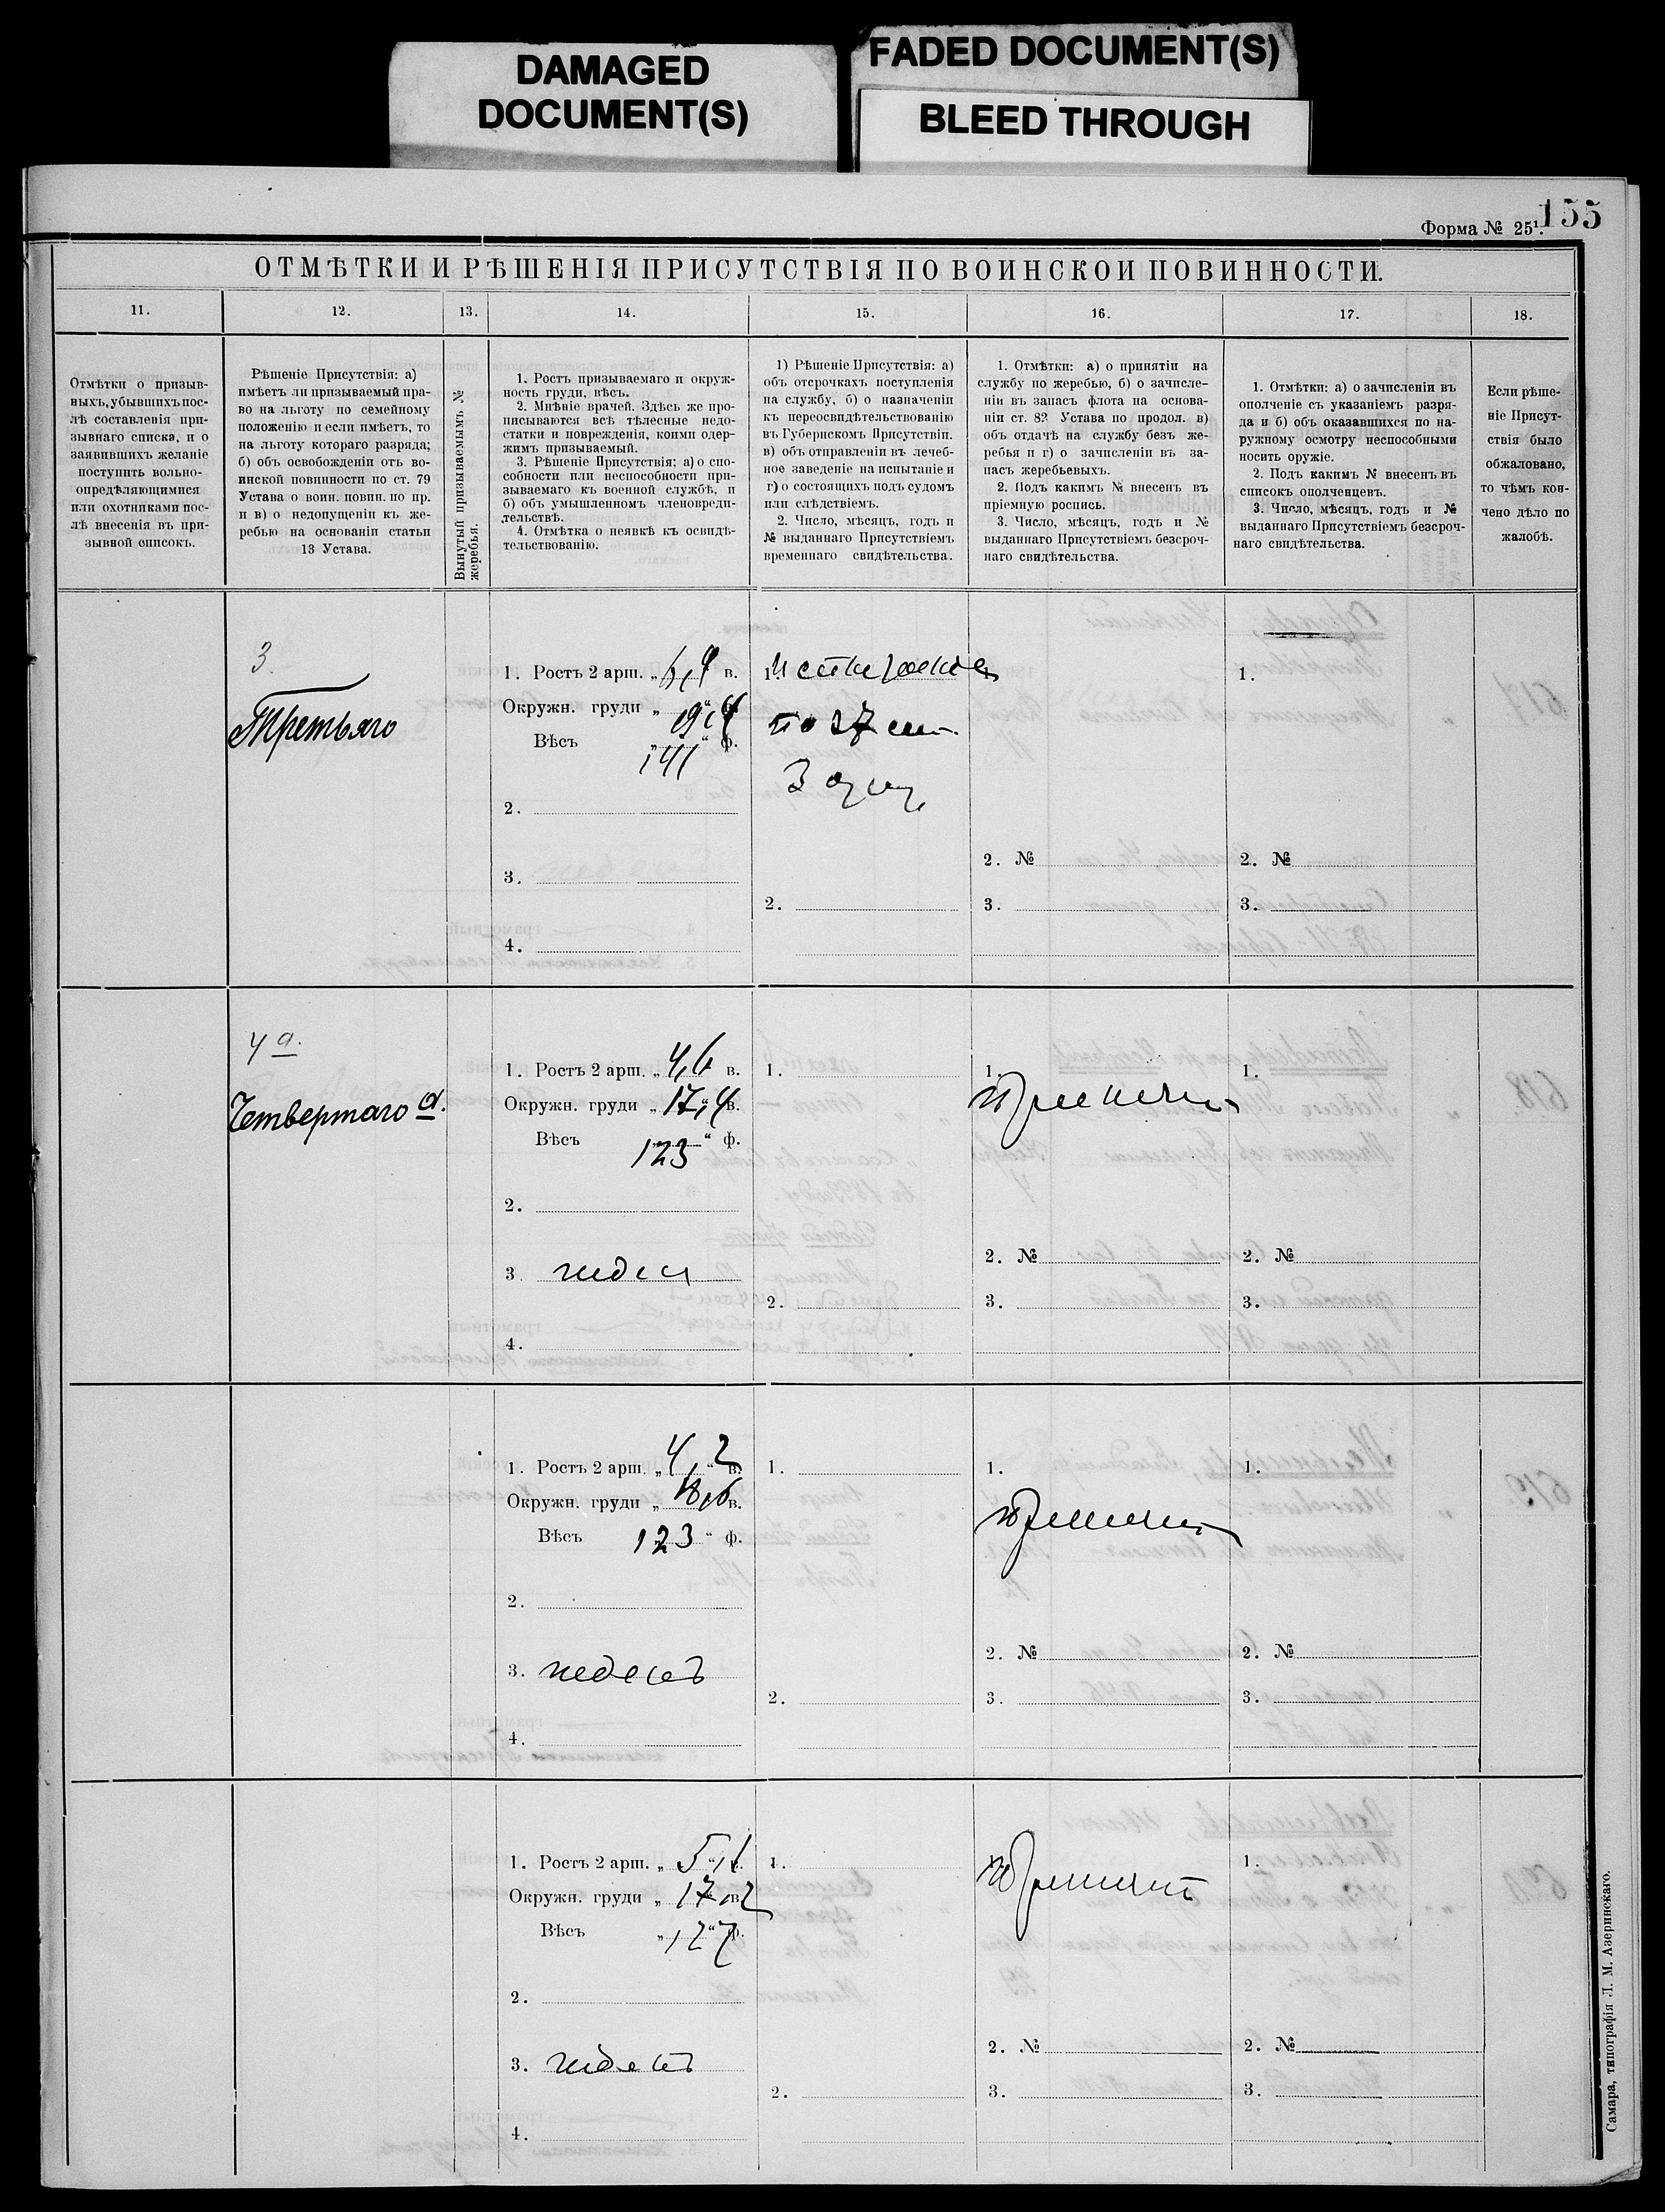 DAMAGED
DOCUMENT(S)
FADED DOCUMENT(S)
BLEED THROUGH
155
Форма № 25¹.
ОТМѢТКИ И РѢШЕНІЯ ПРИСУТСТВІЯ ПО ВОИНСКОЙ ПОВИННОСТИ.
11.
12.
13.
14.
15.
16.
17.
18.
Отмѣтки о призыв-
ныхъ, убывшихъ пос-
лѣ составленія при-
зывнаго списка, и о
заявившихъ желаніе
поступить вольно-
опредѣляющимися
или охотниками пос-
лѣ внесенія въ при-
зывной списокъ.
Рѣшеніе Присутствія: а)
имѣетъ ли призываемый пра-
во на льготу по семейному
положенію и если имѣетъ, то
на льготу котораго разряда;
б) объ освобожденіи отъ во-
инской повинности по ст. 79
Устава о воин. повин. по пр.
и в) о недопущеніи къ же-
ребью на основаніи статьи
13 Устава.
Вынутый призываемымъ №
жеребья.
1. Ростъ призываемаго и окруж-
ность груди, вѣсъ.
2. Мнѣніе врачей. Здѣсь же про-
писываются всѣ тѣлесные недо-
статки и поврежденія, коими одер-
жимъ призываемый.
3. Рѣшеніе Присутствія; а) о спо-
собности или неспособности при-
зываемаго къ военной службѣ, и
б) объ умышленномъ членовреди-
тельствѣ.
4. Отмѣтка о неявкѣ къ освидѣ-
тельствованію.
1) Рѣшеніе Присутствія: а)
объ отсрочкахъ поступленія
на службу, б) о назначеніи
къ переосвидѣтельствованію
въ Губернскомъ Присутствіи.
в) объ отправленіи въ лечеб-
ное заведеніе на испытаніе и
г) о состоящихъ подъ судомъ
или слѣдствіемъ.
2. Число, мѣсяцъ, годъ и
№ выданнаго Присутствіемъ
временнаго свидѣтельства.
1. Отмѣтки: а) о принятіи на
службу по жеребью, б) о зачисле-
ніи въ запасъ флота на основа-
ніи ст. 82 Устава по продол. в)
объ отдачѣ на службу безъ же-
ребья и г) о зачисленіи въ за-
пасъ жеребьевыхъ.
2. Подъ какимъ № внесенъ въ
пріемную роспись.
3. Число, мѣсяцъ, годъ и №
выданнаго Присутствіемъ безсроч-
наго свидѣтельства.
1. Отмѣтки: а) о зачисленіи въ
ополченіе съ указаніемъ разря-
да и б) объ оказавшихся по на-
ружному осмотру неспособными
носить оружіе.
2. Подъ какимъ № внесенъ въ
списокъ ополченцевъ.
3. Число, мѣсяцъ, годъ и №
выданнаго Присутствіемъ безсроч-
наго свидѣтельства.
Если рѣше-
ніе Присут-
ствія было
обжаловано,
то чѣмъ кон-
чено дѣло по
жалобѣ.
3.
Третьяго
1. Ростъ 2 арш. „ в.
Окружн. груди „
Вѣсъ 141 ф.
2.
3.
4.
1.
по 27 ст.
2.
2. №
3.
1.
2. №
3.
4 а.
Четвертаго а.
1. Ростъ 2 арш. „ 4,6 в.
Окружн. груди „ 17,4 в.
Вѣсъ 123 ф.
2.
3.
4.
1.
2.
1.
2. №
3.
1.
2. №
3.
1. Ростъ 2 арш. „ 4,2 в.
Окружн. груди „ 18,6 в.
Вѣсъ 123 ф.
2.
3.
4.
1.
2.
1.
2. №
3.
1.
2. №
3.
1. Ростъ 2 арш. „ 5,1 в.
Окружн. груди „ 17,2 в.
Вѣсъ „ 127 ф.
2.
3.
4.
1.
2.
2. №
3.
1.
2. №
3.
Самара, типографія Л. М. Азеринскаго.